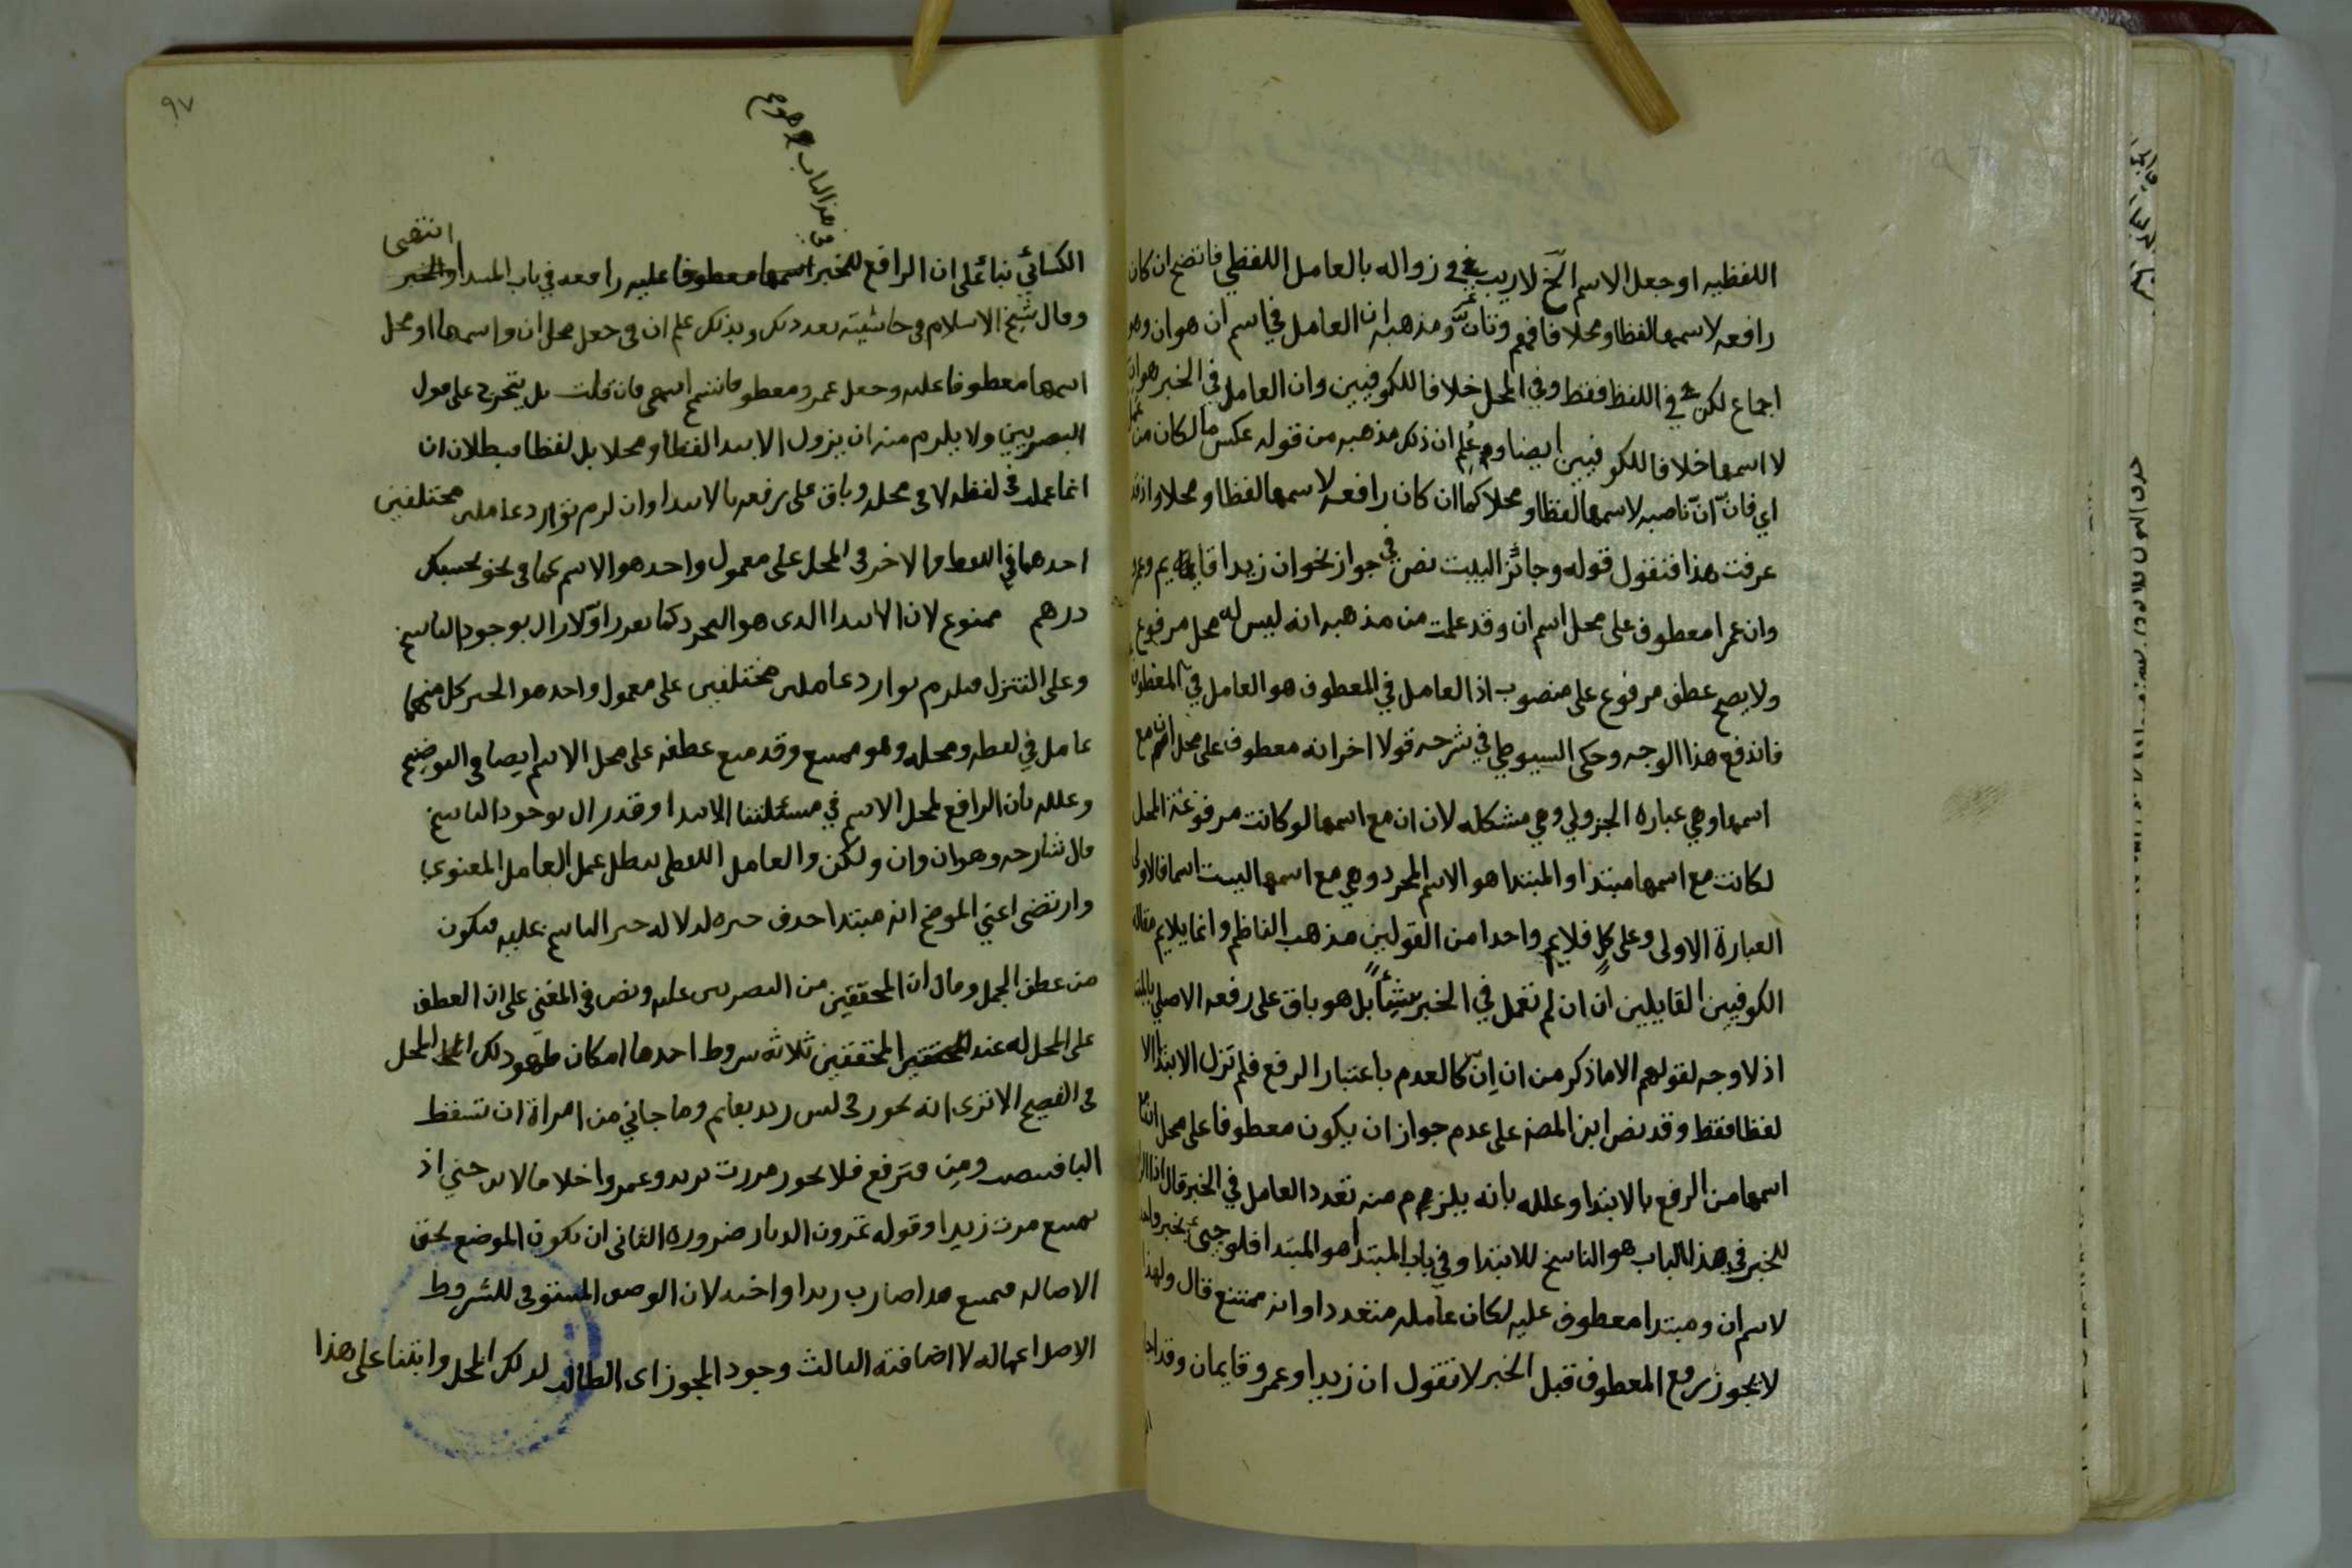 اللفظيه او جعل الاسم الخ لا ريب في زواله بالعامل اللفظي فاتضح ان كان
رافعه لاسمها لفظا ومحلا فافهم ومذهبه ان العامل في اسم ان هو ان وهو
اجماع لكن في اللفظ فقط وفي المحل خلافا للكوفيين وان العامل في الخبر هو ان
لا اسمها خلافا للكوفيين ايضا وعلم ان ذلك مذهبه من قوله عكس ما لكان من عمل
اي فان انّ ناصبه لاسمها لفظا ومحلا كما ان كان رافعه لاسمها لفظا ومحلا واذ قد
عرفت هذا فنقول قوله وجائز البيت نص في جواز نحو ان زيدا قايم وعمرو
وان عمرا معطوف على محل اسم ان وقد علمت من مذهبه انه ليس له محل مرفوع
ولا يصح عطف مرفوع على منصوب اذ العامل في المعطوف هو العامل في المعطوف
فاندفع هذا الوجه وحكى السيوطي في شرحه قولا اخر انه معطوف على محل ان مع
اسمها وهي عبارة الجزولي وهي مشكله لان ان مع اسمها لو كانت مرفوعة المحل
لكانت مع اسمها مبتدا والمبتدا هو الاسم المجرد وهي مع اسمها ليست اسما فالاولى
العبارة الاولى وعلى كل فلا يلايم واحدا من القولين مذهب الناظم وانما يلايم مقاله
الكوفيين القايلين ان ان لم تعمل في الخبر شيئا بل هو باق على رفعه الاصلي بالمبتدا
اذ لا وجه لقولهم الا ما ذكر من ان انّ كالعدم باعتبار الرفع فلم تزل الابتدا الا
لفظا فقط وقد نص ابن المصنف على عدم جواز ان يكون معطوفا على محل ان مع
اسمها من الرفع بالابتدا وعلله بانه يلزم منه تعدد العامل في الخبر قال اذ الرافع
للخبر في هذا الباب هو الناسخ للابتدا وفي باب المبتدا هو المبتدا فلو جيء بخبر واحد
لاسم ان ومبتدا معطوف عليه لكان عامله متعددا وانه ممتنع قال ولهذا
لا يجوز رفع المعطوف قبل الخبر لا تقول ان زيدا وعمرو قايمان وقد اجازه
٩٧
من هذا الباب
الكسائي بنا على ان الرافع للخبر رافعه في باب المبتدا انتهى
وقال شيخ الاسلام في حاشيته بعد ذلك وبذلك علم ان في جعل محل ان واسمها او محل
اسمها معطوفا عليه وجعل عمرو معطوفا تسمح انتهى فان قلت بل يتخرج على قول
البصريين ولا يلزم منه ان يزول الابتدا لفظا ومحلا بل لفظا فبطلان ان
انما عملت في لفظه لا في محله وباق على رفعه بالابتدا وان لزم توارد عاملين مختلفين
احدهما في اللفظ والاخر في المحل على معمول واحد هو الاسم كما في نحو بحسبك
درهم ممنوع لان الابتدا الذي هو التجرد كما تقرر اولا زال بوجود الناسخ
وعلى التنزل فيلزم توارد عاملين مختلفين على معمول واحد هو الخبر كل منهما
عامل في لفظه ومحله وهو ممتنع وقد منع عطفه على محل الاسم ايضا في التوضيح
وعلله بان الرافع لمحل الاسم في مسئلتنا الابتدا وقد زال بوجود الناسخ
قال شارحه وهو ان وان ولكن والعامل اللفظي يبطل عمل العامل المعنوي
وارتضى اعني الموضح انه مبتدا حذف خبره لدلالة خبر الناسخ عليه فيكون
من عطف الجمل وقال ان المحققين من البصريين عليه ونص في المغني على ان العطف
على المحل له عند المحققين ثلاثة شروط احدها امكان ظهور ذلك المحل
في الفصيح الا ترى انه يجوز في ليس زيد بقايم وما جاني من امراة ان تسقط
البا فتنصب ومن فترفع فلا يجوز مررت بزيد وعمروا خلافا لابن جني اذ
يمتنع مررت زيدا وقوله تمرون الديار ضرورة الثاني ان يكون الموضع بحق
الاصالة فيمتنع هذا ضارب زيدا واخيه لان الوصف المستوفي للشروط
الاصل اعماله لا اضافته الثالث وجود المجوز اي الطالب لذلك المحل وابتنا على هذا